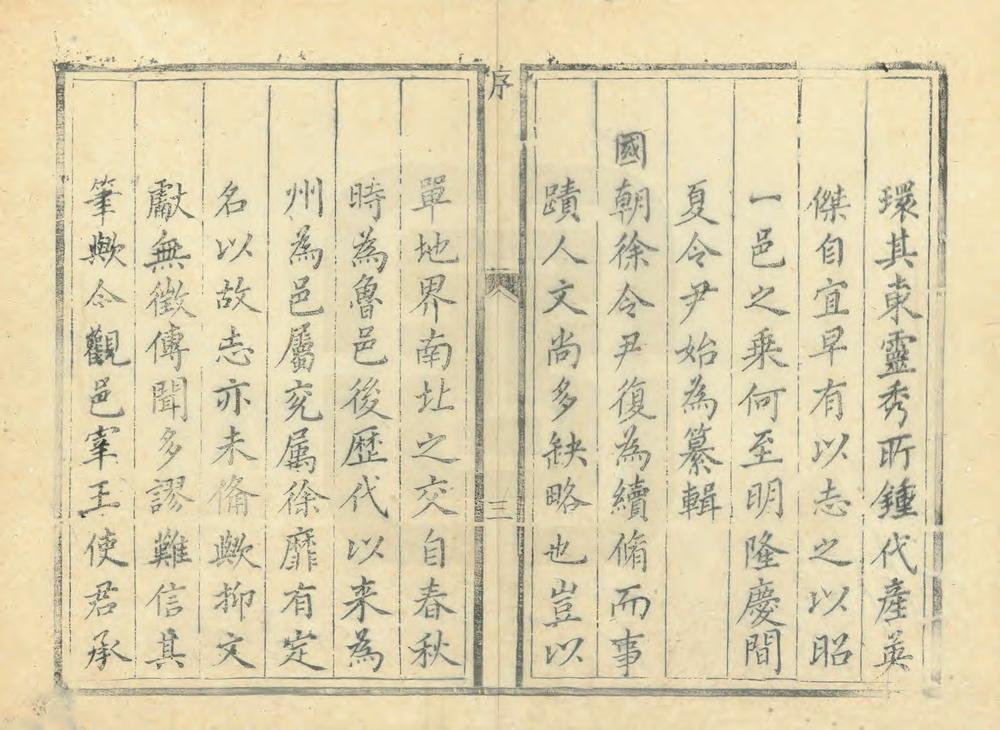 環其東靈秀所鍾代產英
傑自宜早有以志之以昭
一邑之乗何至明隆慶間
夏令尹始為纂輯
國朝徐令尹復為續脩而事
蹟人文尚多缺略也豈以
序
三
單地界南北之交自春秋
時為魯邑後歷代以来為
州為邑屬兖属徐靡有定
名以故志亦未俻歟抑文
獻無徵傳聞多謬難信其
筆歟今觀邑宰王使君承